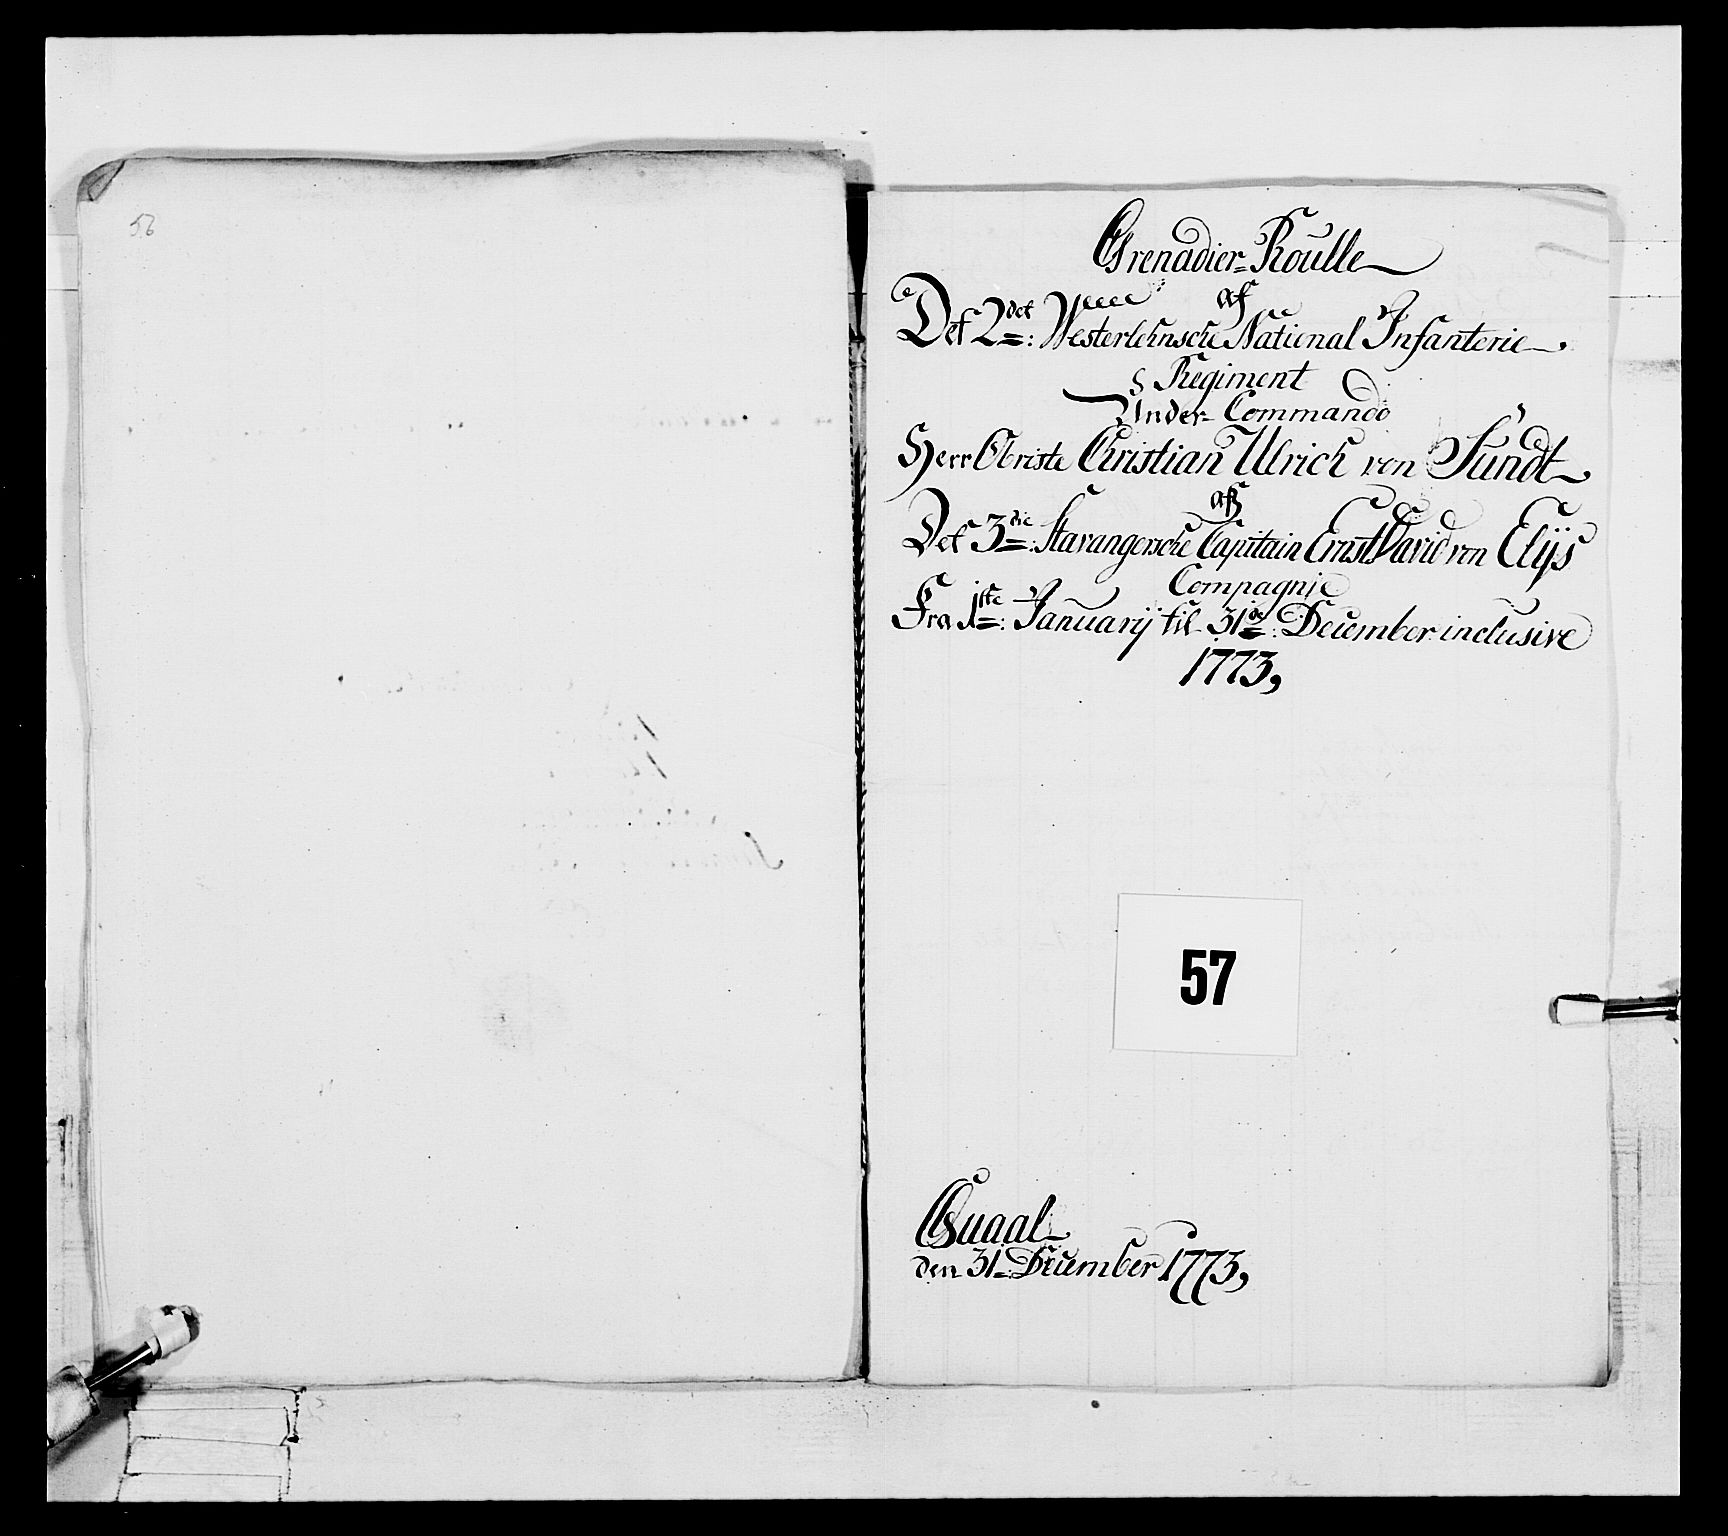 56
Grenadier-Roulle
af
Det 2det: Westerlehnsche National Infanterie
Regiment
Under Commando
Herr Obriste Christian Ulrich von Sundt
af
Det 3die: Stavangersche Capitain Ernst David von Elÿs
Compagnie
Fra 1ste: Januarÿ til 31de: December inclusive
1773,
57
den 31: December 1773,